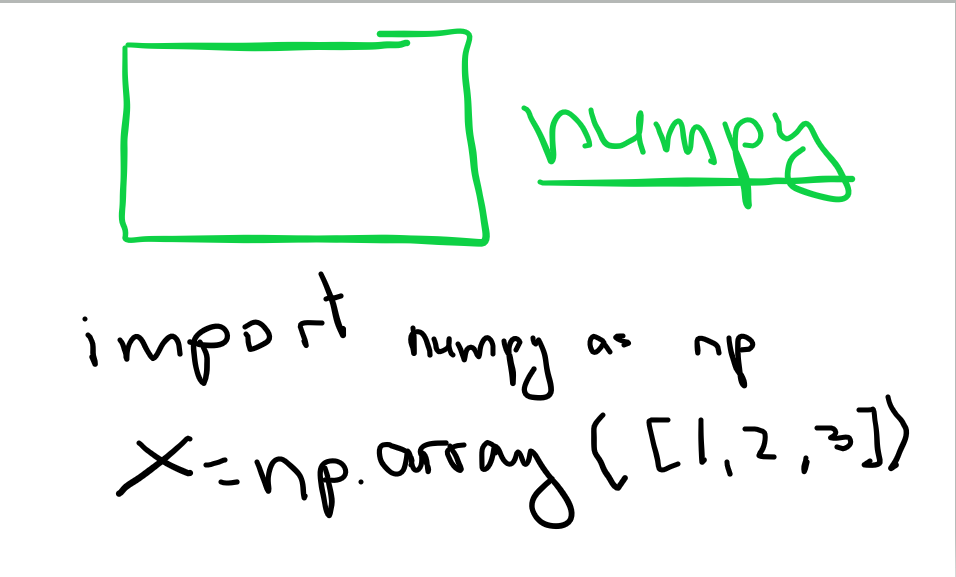 numpy
import numpy as np
X=np.array([1,2,3])